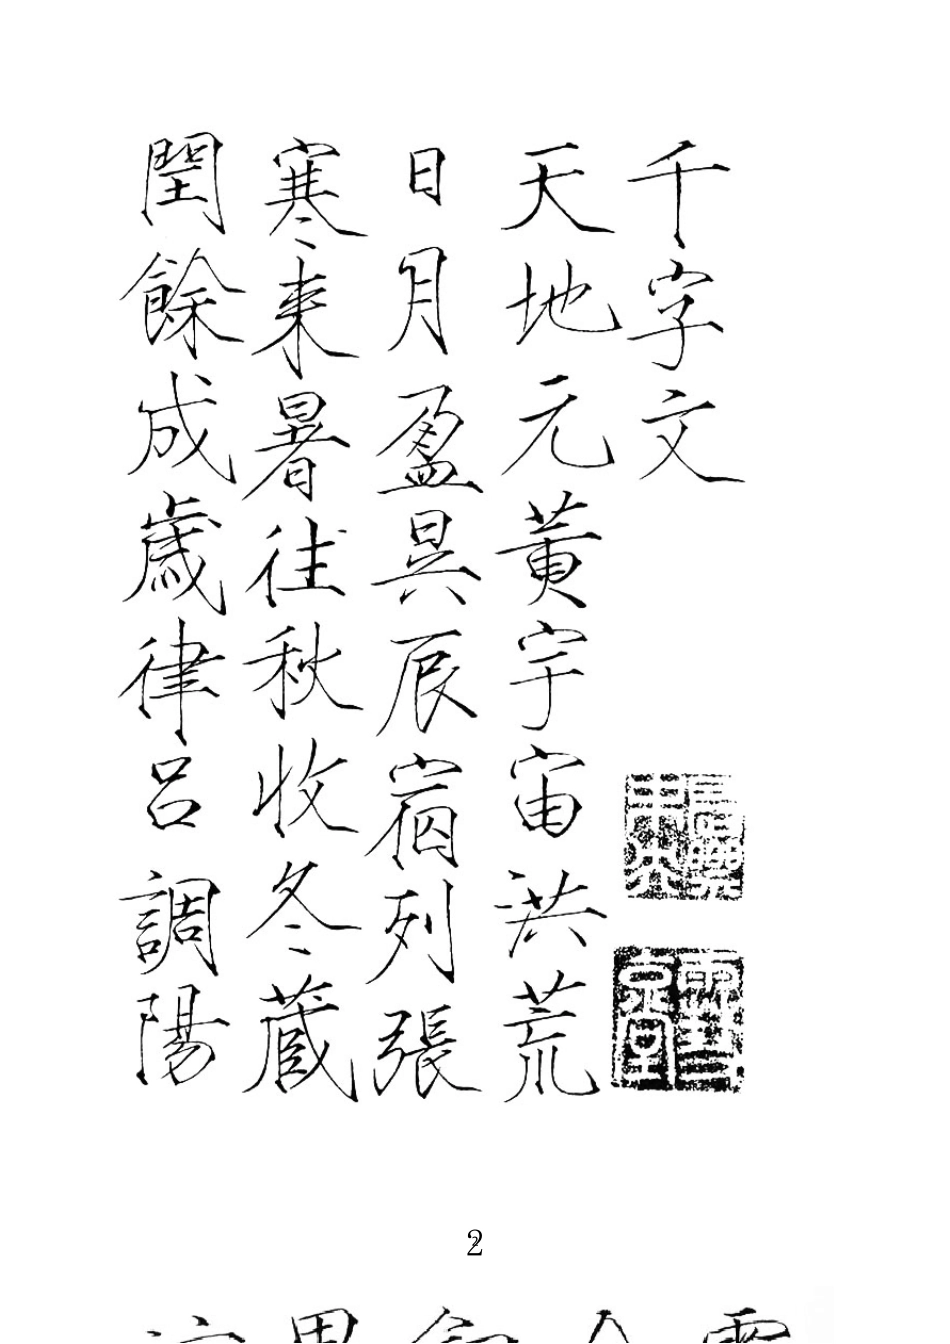 千字文
天地元黃宇宙洪荒
日月盈昃辰宿列張
寒来暑往秋收冬蔵
閏餘成歲律呂調陽
2